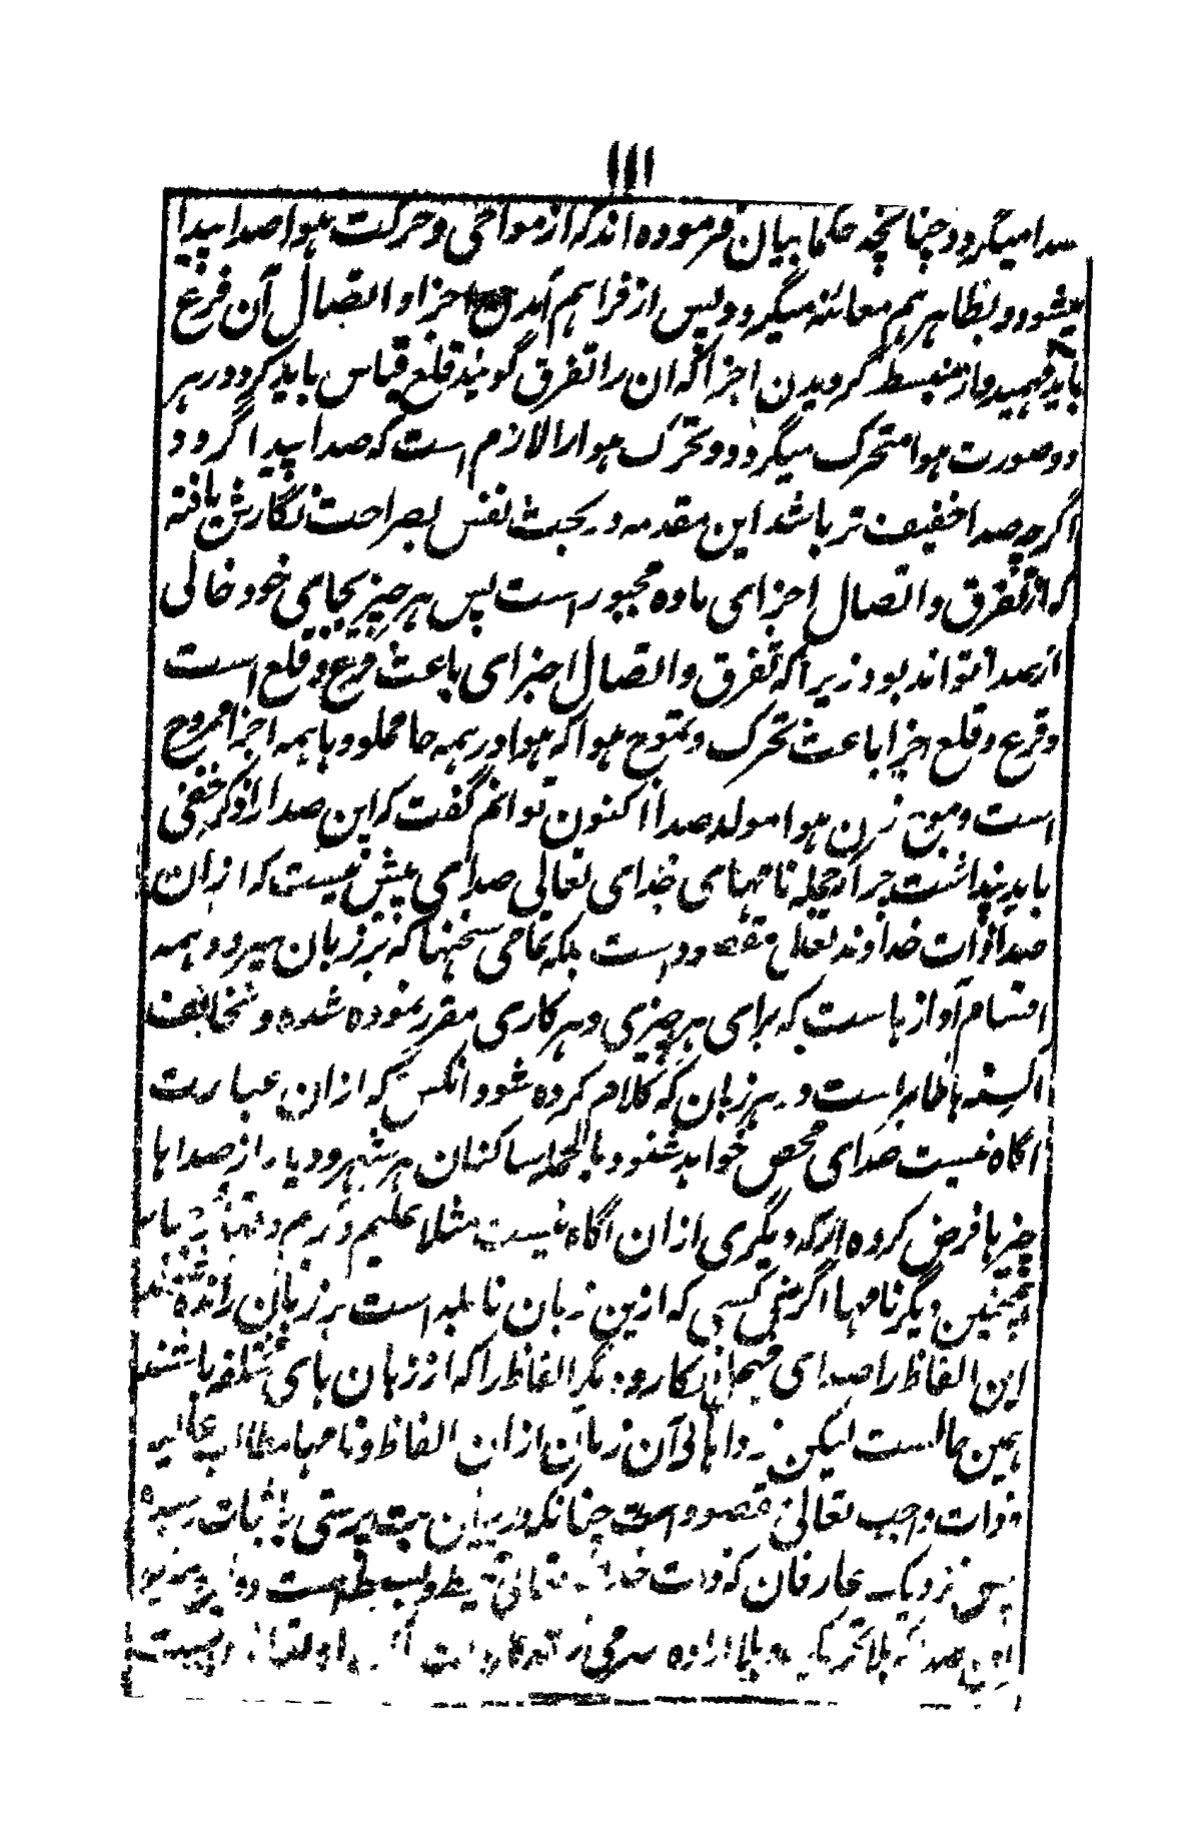 ۱۱۱
صدا میگردد چنانچه حکما بیان فرموده اند که از مواجی و حرکت هوا صدا پیدا
میشود و بظاهر هم معائنه میگردد پس از فراهم آمدن اجزا و اتصال آن قرع
باید فهمید و از منبسط گردیدن اجزا که ان را تفرق گویند قلع قیاس باید کرد و در هر
دو صورت هوا متحرک میگردد و تحرک هوا را لازم است که صدا پیدا گردد
اگرچه صدا خفیف تر باشد این مقدمه در بحث نفس بصراحت نگارش یافته
که از تفرق و اتصال اجزای ماده مجبور است پس هر چیز بجای خود خالی
از صدا نتواند بود زیرا که تفرق و اتصال اجزای باعث قرع و قلع است
و قرع و قلع اجزا باعث تحرک و تموج هوا که هوا در همه جا مملو و با همه اجزا ممزوج
است و موج زدن هوا مولد صدا اکنون توانم گفت که این صدا را ذکر خفی
باید پنداشت چرا که جمله نامهای خدای تعالی صدای بیش نیست که ازان
صدا ذات خداوند تعالی مقصود است بلکه تمامی سخنها که بر زبان میرود همه
اقسام آوازها ست که برای هر چیزی و هر کاری مقرر نموده شده و تخالف
السنه ها ظاهر است و هر زبان که کلام کرده شود انکس که ازان عبارت
اگاه نیست صدای محض خواهد شنود بالجمله ساکنان هر شهر و دیار از صداها
چیزها فرض کرده اند که دیگری ازان اگاه نیست مثلا علیم و
همچنین دیگر نامها اگر پیش کسی که ازین زبان نابلد است بر زبان رانده شود
این الفاظ را صدای انکارد دیگر الفاظ را که از زبان های مختلفه باشند
همین حالست لیکن نزد اهالی آن زبان ازان الفاظ و نامها مطالب عالیه
ذات واجب تعالی مقصود است چنانکه در بیان بت پرستی باثبات رسیده
پس نزدیک عارفان که ذات خدای تعالی محیط و بسیط است
این صدا که بلا تحریک و بلا اراده سرمی زند